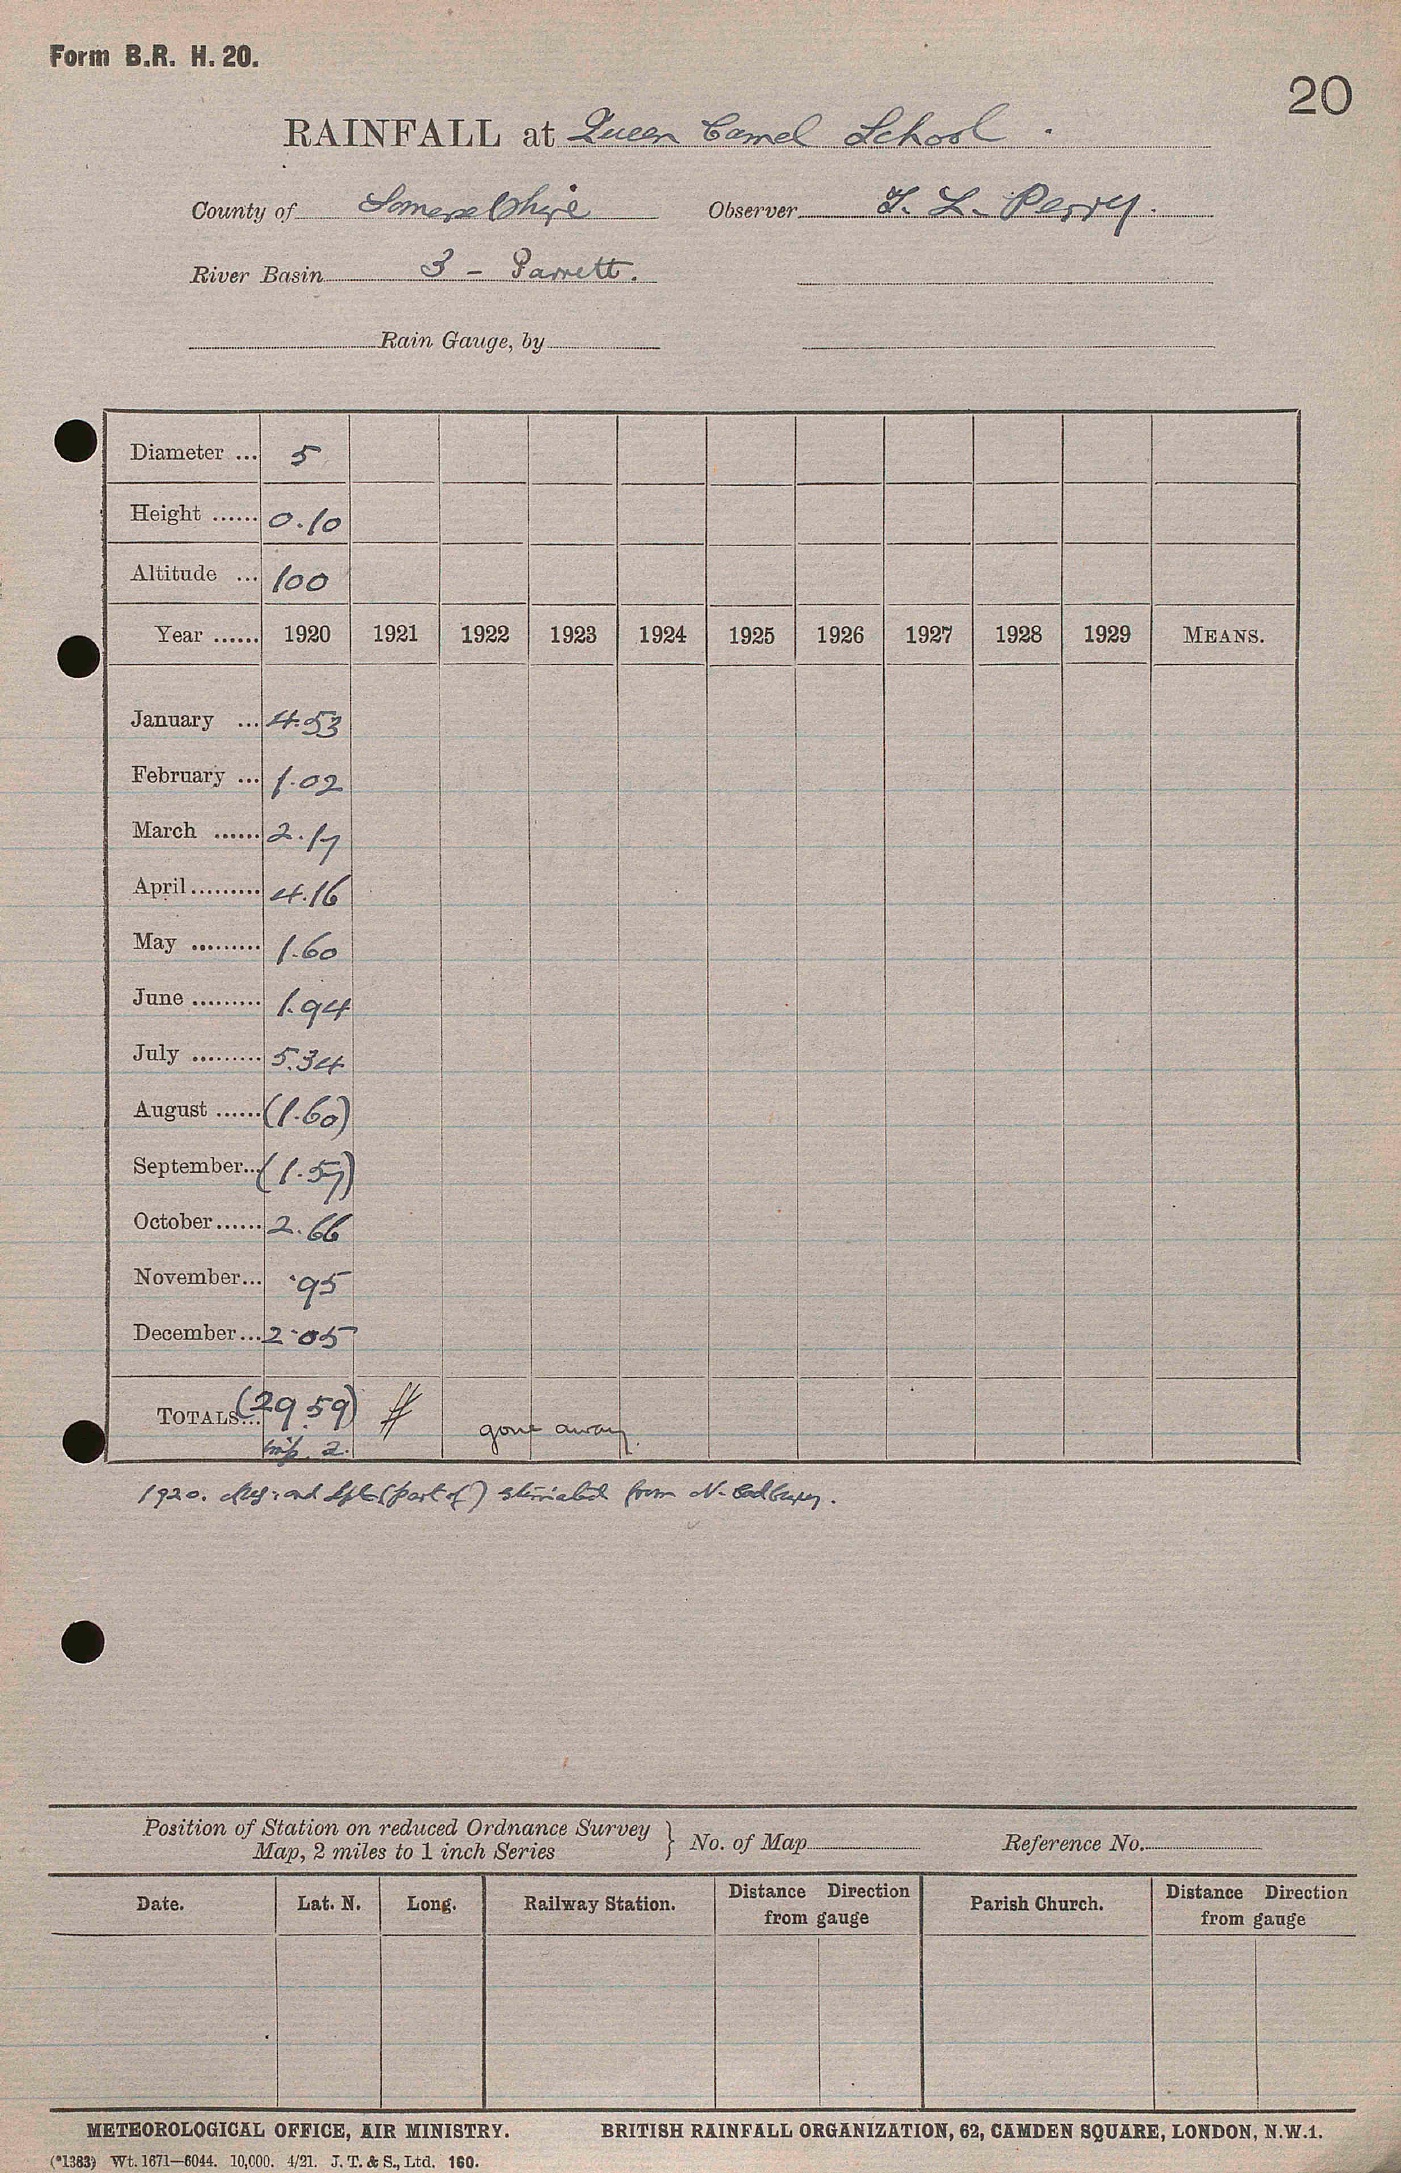 Form B.R. H. 20.
20
RAINFALL at Queen Camel School.
County of Somersetshire Observer T. L. Perry.
River Basin 3 - Parrett.
Rain Gauge, by
Diameter ... 5
Height ...... 0.10
Altitude ... 100
Year ...... 1920 1921 1922 1923 1924 1925 1926 1927 1928 1929 MEANS.
January ... 4.53
February ... 1.02
March ...... 2.17
April ......... 4.16
May ......... 1.60
June ......... 1.94
July ......... 5.34
August ...... (1.60)
September... (1.57)
October ...... 2.66
November... .95
December... 2.05
TOTALS... (29.59) # gone away.
2.
1920. Aug: and Sept (part of) estimated from N. Cadbury.
Position of Station on reduced Ordnance Survey
Map, 2 miles to 1 inch Series } No. of Map Reference No.
Date. Lat. N. Long. Railway Station. Distance Direction from gauge Parish Church. Distance Direction from gauge
METEOROLOGICAL OFFICE, AIR MINISTRY. BRITISH RAINFALL ORGANIZATION, 62, CAMDEN SQUARE, LONDON, N.W.1.
(*1383) Wt. 1671—6044. 10,000. 4/21. J. T. & S., Ltd. 160.